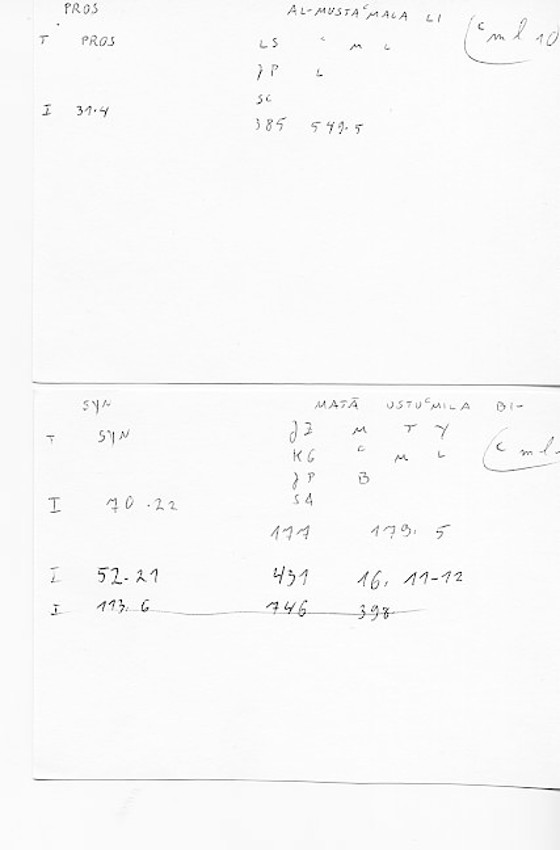 PROS AL-MUSTAᶜMALA LI (ᶜml 10
T PROS LS ᶜ M L
JP L
SC
I 31.4 385 549.5
SYN MATĀ USTUᶜMILA BI-
T SYN JZ M T Y (ᶜml
KG ᶜ M L
JP B
I 70.22 SA
177 179. 5
I 52.21 431 16. 11-12
I 113.6 746 398